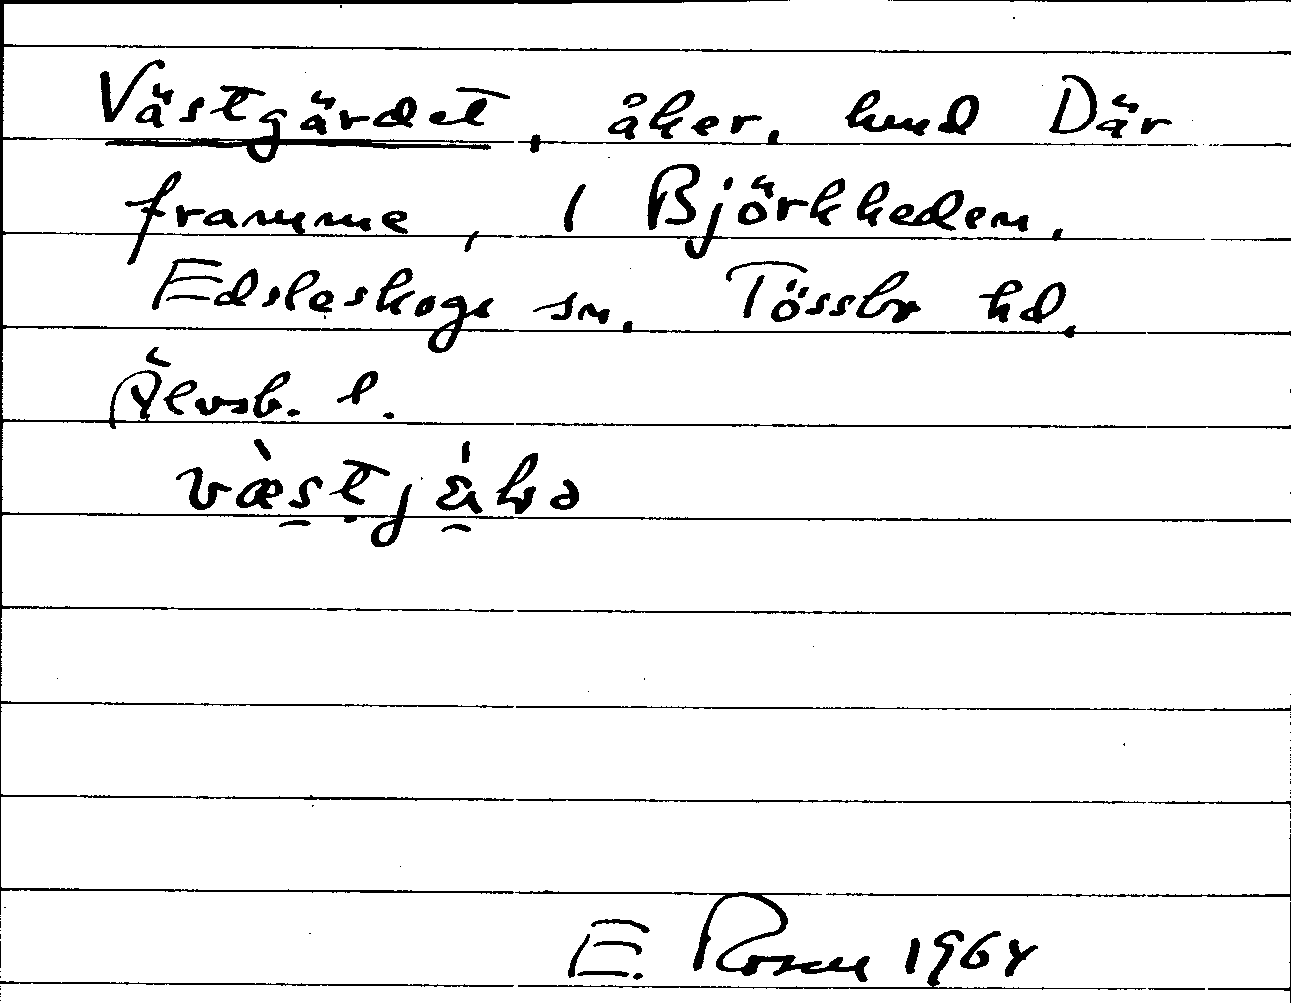 Västgärdet, åker, hmd Där
framme, 1 Björkheden,
Edsleskogs sn, Tössbo hd,
Älvsb. l.
E. Rosen 1964